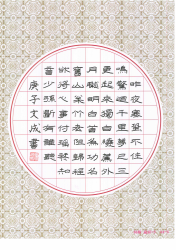 昨夜寒蛩不住
鳴驚回千里夢已三
更起來獨外
月朧明白首為功名
舊山松竹老阻歸程
欲將心事付瑤琴知
音少弦斷有誰聽
庚子文成書